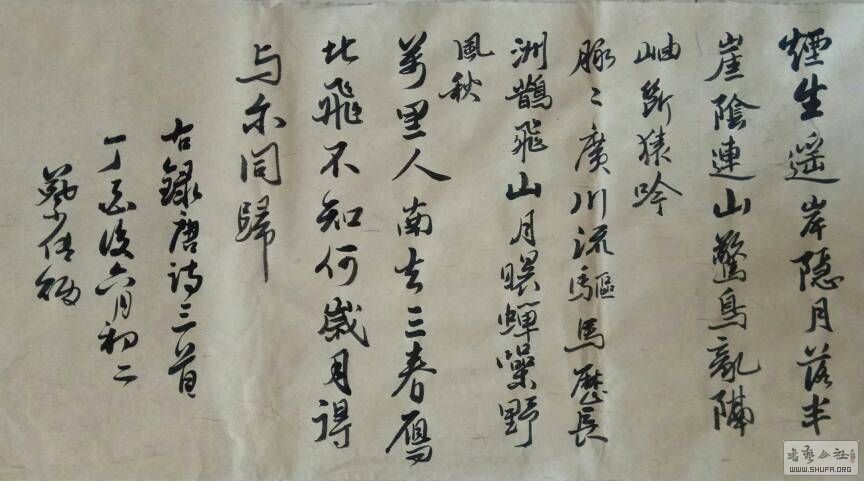 煙生遥岸隐月落半
崖陰連山驚鳥亂隔
岫斷猿吟
脉〻廣川流驅馬歷長
洲鵲飛山月蟬噪野
風秋
萬里人南去三春鴈
北飛不知何歲月得
与尔同歸
右録唐诗三首
丁酉後六月初二
書藝公社
WWW.SHUFA.ORG